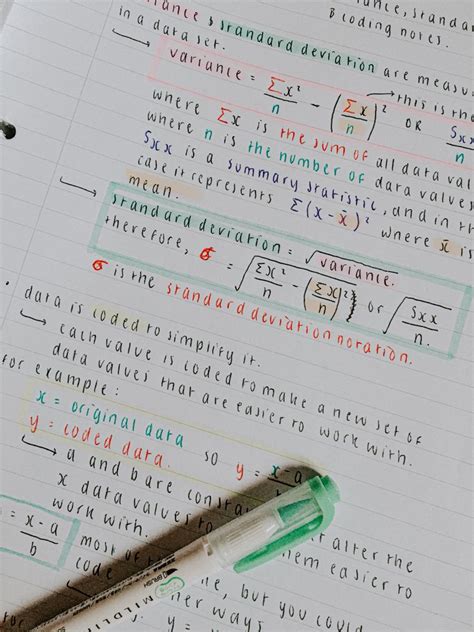 variance, standard
& coding notes.
variance & standard deviation are measu
in a data set.
variance = Σx²/n − (Σx/n)² OR Sxx/n
this is the
where Σx is the sum of all data val
where n is the number of data values
Sxx is a summary statistic, and in th
case it represents Σ(x-x̄)² where x̄ is
mean.
standard deviation = √variance.
therefore, σ = √(Σx²/n − (Σx/n)²) or √(Sxx/n).
σ is the standard deviation notation.
data is coded to simplify it.
each value is coded to make a new set of
data values that are easier to work with.
for example:
x = original data
y = coded data.
so y = x-a
a and b are consta
t alter the
x data values to
hem easier to
work with.
= x-a/b
most
code
ne, but you could
her ways
for
y =
MILDLI
BRUSH